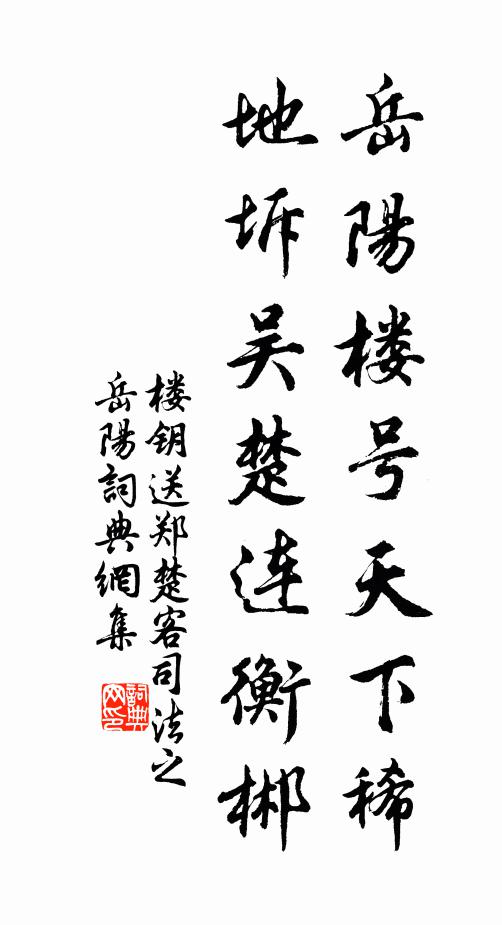 岳陽楼号天下稀
地坼吴楚连衡郴
楼钥送郑楚客司法之
岳陽詞典網集
詞典网印